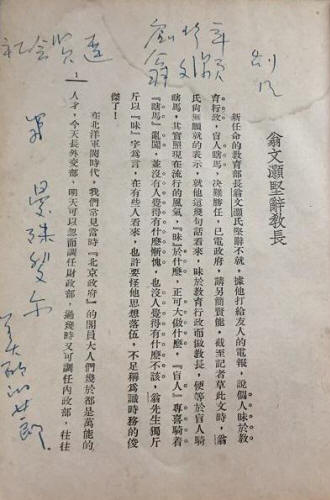 翁文灝堅辭教長
新任命的教育部長翁文灝氏堅辭不就，據他打給友人的電報，說個人昧於教
育行政，盲人瞎馬，决難勝任，已電政府，請另簡賢能，截至記者草此文時，翁
氏尙無就的表示，就他這幾句話看來，昧於教育行政而做教長，便等於盲人騎
瞎馬，其實照現在流行的風氣，『昧』於什麼，正可大做什麼，『盲人』專喜騎着
『瞎馬』亂闖，並沒有人覺得有什麼慚愧，也沒人覺得有什麼不該，翁先生獨斤
斤以『昧』字爲言，在有些人看來，也許要怪他思想落伍，不足稱爲識時務的俊
傑了！
在北洋軍閥時代，我們常見當時『北京政府』的閣員大人們幾於都是萬能的
人才，今天長外交部，明天可以忽而調任財政部，過幾時又可調任內政部，往往
1
翁文灝
社会賢達